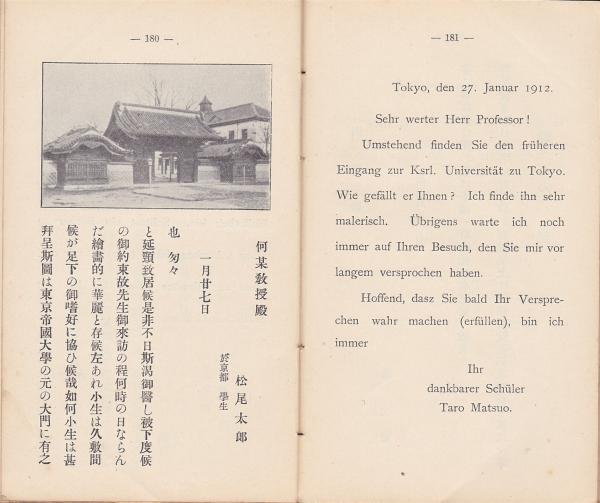 — 180 —
拜呈斯圖は東京帝國大學の元の大門に有之
候が足下の御嗜好に協ひ候哉如何小生は甚
だ繪畫的に華麗と存候左あれ小生は久敷間
の御約束故先生御來訪の程何時の日ならん
と延頸致居候是非不日斯渴御醫し被下度候
也 匆々
一月廿七日
於京都 學生
松尾太郎
何某敎授殿
— 181 —
Tokyo, den 27. Januar 1912.
Sehr werter Herr Professor!
Umstehend finden Sie den früheren
Eingang zur Ksrl. Universität zu Tokyo.
Wie gefällt er Ihnen? Ich finde ihn sehr
malerisch. Übrigens warte ich noch
immer auf Ihren Besuch, den Sie mir vor
langem versprochen haben.
Hoffend, dasz Sie bald Ihr Verspre-
chen wahr machen (erfüllen), bin ich
immer
Ihr
dankbarer Schüler
Taro Matsuo.